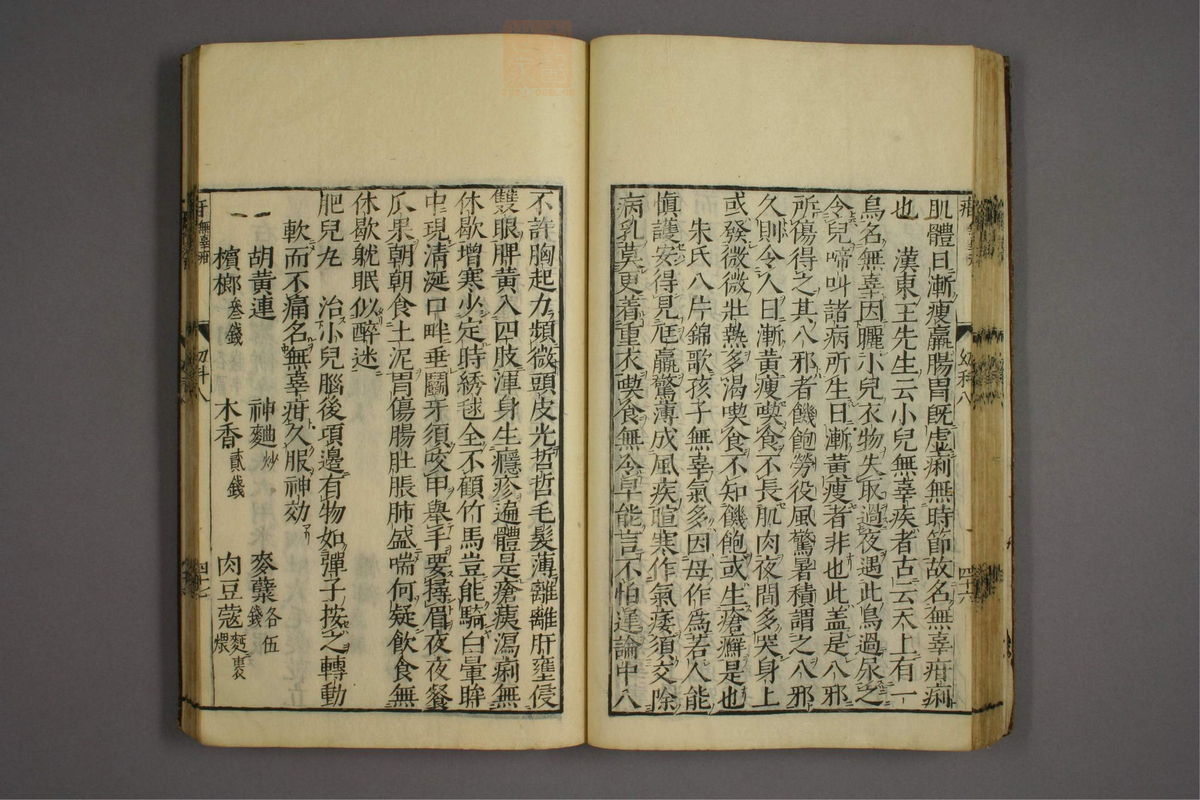 肌體日漸瘦羸腸胃旣虛痢無時節故名無辜疳痢
也　漢東王先生云小兒無辜疾者古云天上有一
鳥名無辜因曬小兒衣物失取過夜遇此鳥過尿之
令兒啼叫諸病所生日漸黃瘦者非也此盖是八邪
所傷得之其八邪者饑飽勞役風驚暑積謂之八邪
久則令人日漸黃瘦喫食不長肌肉夜間多哭身上
或發微微壯熱多渴喫食不知饑飽或生瘡癬是也
朱氏八片錦歌孩子無辜氣多因母作爲若人能
愼護安得見尫羸驚薄成風疾暄寒作氣痿須交除
病乳莫更着重衣喫食無令早能言不怕遲論中八
不許胸起力類微頭皮光哲哲毛髮薄離離肝壅侵
雙眼脾黃入四肢渾身生癮疹遍體是瘡痍瀉痢無
休歇增寒少定時綉毬全不顧竹馬豈能騎白暈眸
中現清涎口畔垂鬬牙須咬甲舉手要撏眉夜夜餐
瓜果朝朝食土泥胃傷腸肚脹肺盛喘何疑飲食無
休歇躭眠似醉迷
肥兒丸　治小兒腦後項邊有物如彈子按之轉動
軟而不痛名無辜疳久服神效
一　胡黃連　神麯炒　麥蘖各伍錢
一　檳榔叁錢　木香貳錢　肉豆蔻麪裹煨
幼科八
四十六
四十七